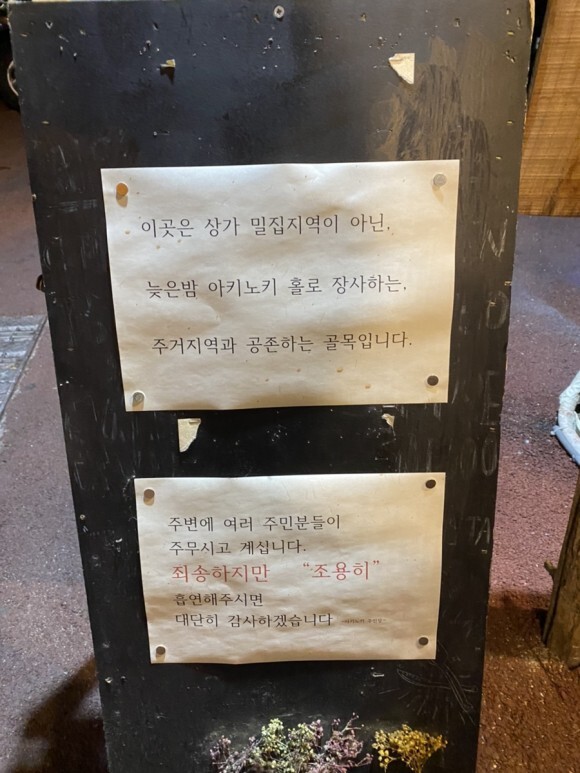 이곳은 상가 밀집지역이 아닌,
늦은밤 아키노키 홀로 장사하는,
주거지역과 공존하는 골목입니다.
주변에 여러 주민분들이
주무시고 계십니다.
죄송하지만 “조용히”
흡연해주시면
대단히 감사하겠습니다